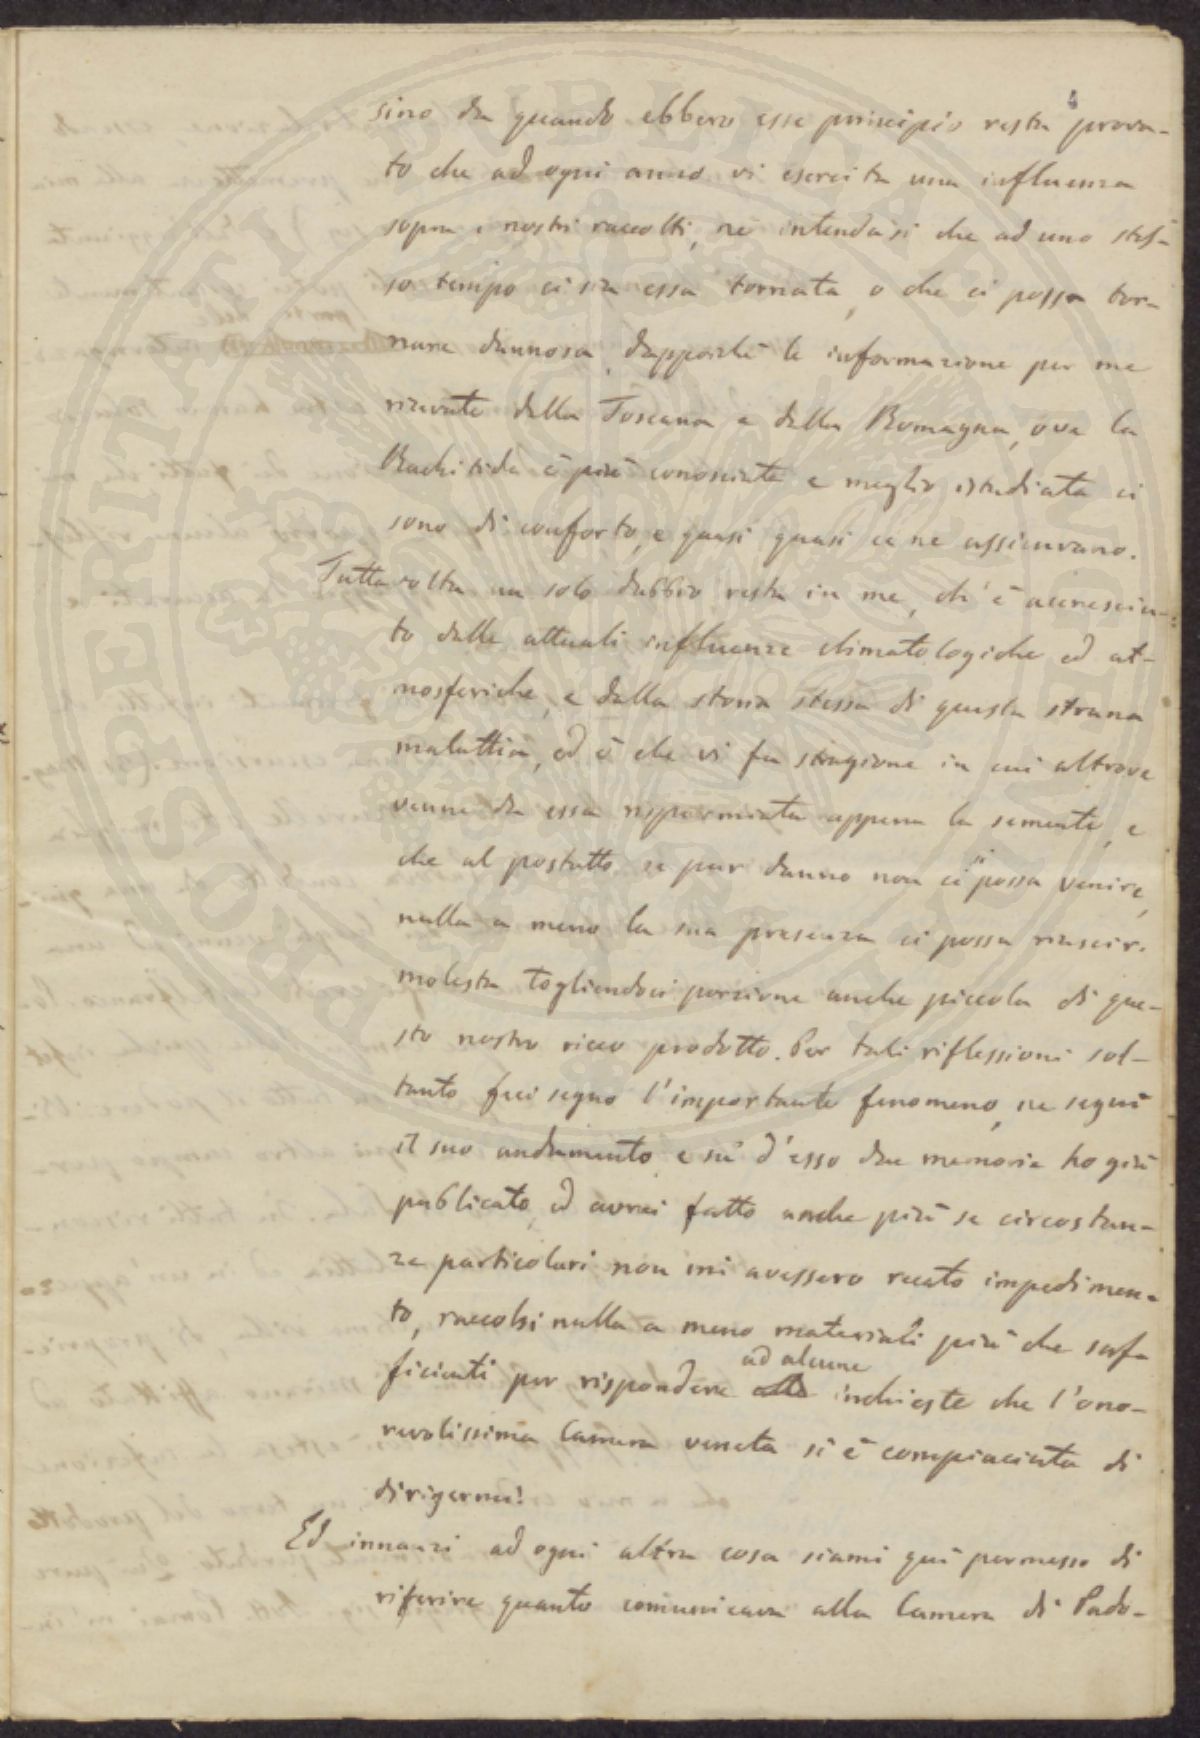 sino da quando ebbero esse principio resta prova-
to che ad ogni anno vi esercita una influenza
sopra i nostri raccolti, nè intendasi che ad uno stes-
so tempo ci sia essa tornata, o che ci possa tor-
nare dannosa, dapporchè le informazione per me
ricevute dalla Toscana e dalla Romagna, ove la
Rachitide è più conosciuta e meglio istudiata ci
sono di conforto, e quasi quasi ce ne assicurano.
Tutta volta un solo dubbio resta in me, ch'è accresciu-
to dalle attuali influenze climatologiche ed at-
mosferiche, e dalla storia stessa di questa strana
malattia, ed è che vi fu stagione in cui altrove
venne da essa risparmiata appena la semente, e
che al postutto se pur danno non ci possa venire,
nulla a meno la sua presenza ci possa riuscir.
molesta togliendoci porzione anche piccola di que-
sto nostro ricco prodotto. Per tali riflessioni sol-
tanto feci segno l'importante fenomeno, ne seguii
il suo andamento, e su d'esso due memorie ho già
publicato, ed avrei fatto anche più se circostan-
ze particolari non mi avessero recato impedimen-
to, raccolsi nulla a meno materiali più che suf-
ad alcune
ficienti per rispondere alle inchieste che l'ono-
revolissima Camera veneta si è compiaciuta di
dirigermi!
Ed innanzi ad ogni altra cosa siami quì permesso di
riferire quanto comunicava alla Camera di Pado-